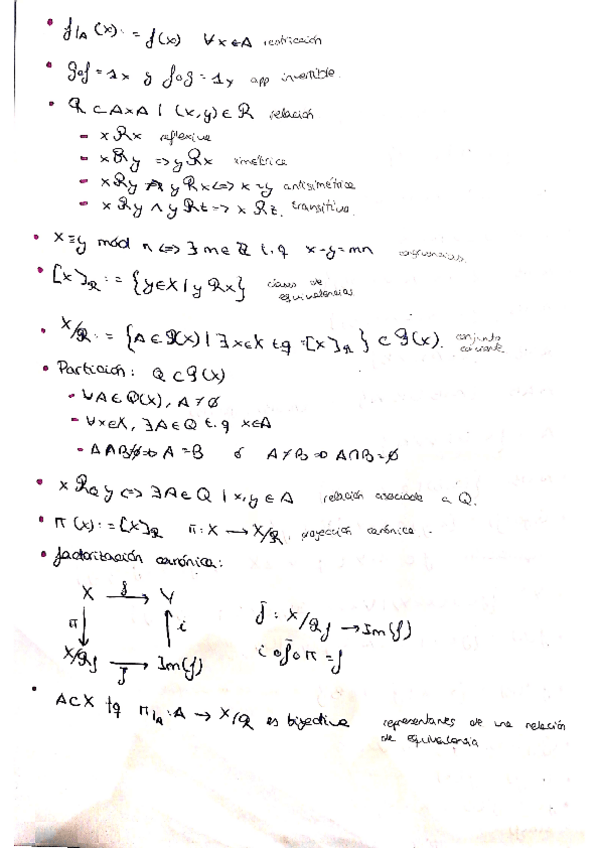 • f|A (x): = f(x) ∀x∈A restricción
• g∘f = 1x y f∘g = 1y app invertible.
• R ⊂ A×A | (x,y) ∈ R relación
- x R x reflexiva
- x R y => y R x simétrica
- x R y ∧ y R x <=> x = y antisimétrica
- x R y ∧ y R z -> x R z. transitiva.
• x ≡ y mód n <=> ∃ m ∈ ℤ t.q x - y = mn congruencias
• [x]R := {y∈X | y R x} clases de equivalencias
• X/R := {A ∈ P(X) | ∃ x∈X tq =[x]R } ⊂ P(x). conjunto cociente
• Partición: Q ⊂ P(X)
- ∀A ∈ Q(X), A ≠ ∅
- ∀x∈X, ∃A∈Q t.q x∈A
- A∩B≠∅ => A = B ó A ≠ B => A∩B = ∅
• x RQ y <=> ∃A∈Q | x,y ∈ A relación asociada a Q.
• π(x): = [x]R π: X → X/R. proyección canónica.
• factorización canónica:
X f → Y
π ↓ ↑ i
X/Rf → f̄ Im(f)
f̄ : X/Rf → Im(f)
i ∘ f̄ ∘ π = f
• A⊂X tq π|A : A → X/R es biyectiva representantes de una relación de equivalencia